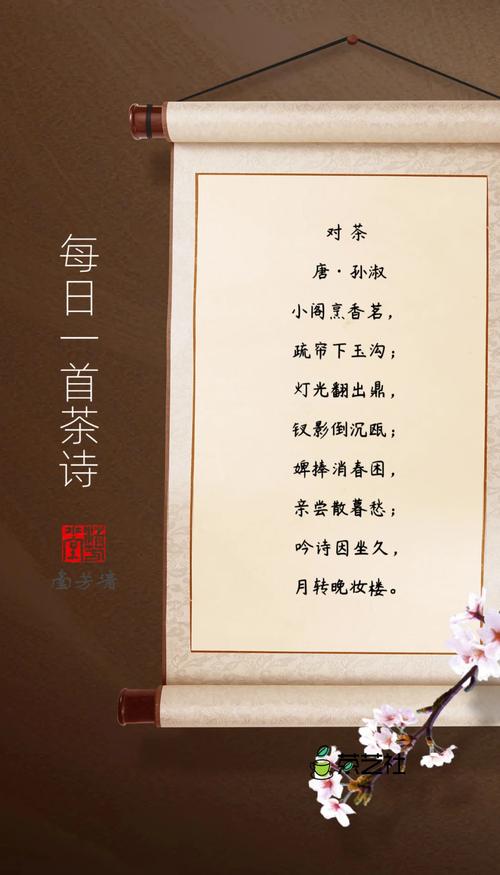 每日一首茶诗
对茶
唐·孙淑
小阁烹香茗，
疏帘下玉沟；
灯光翻出鼎，
钗影倒沉瓯；
婢捧消春困，
亲尝散暮愁；
吟诗因坐久，
月转晚妆楼。
茶艺社